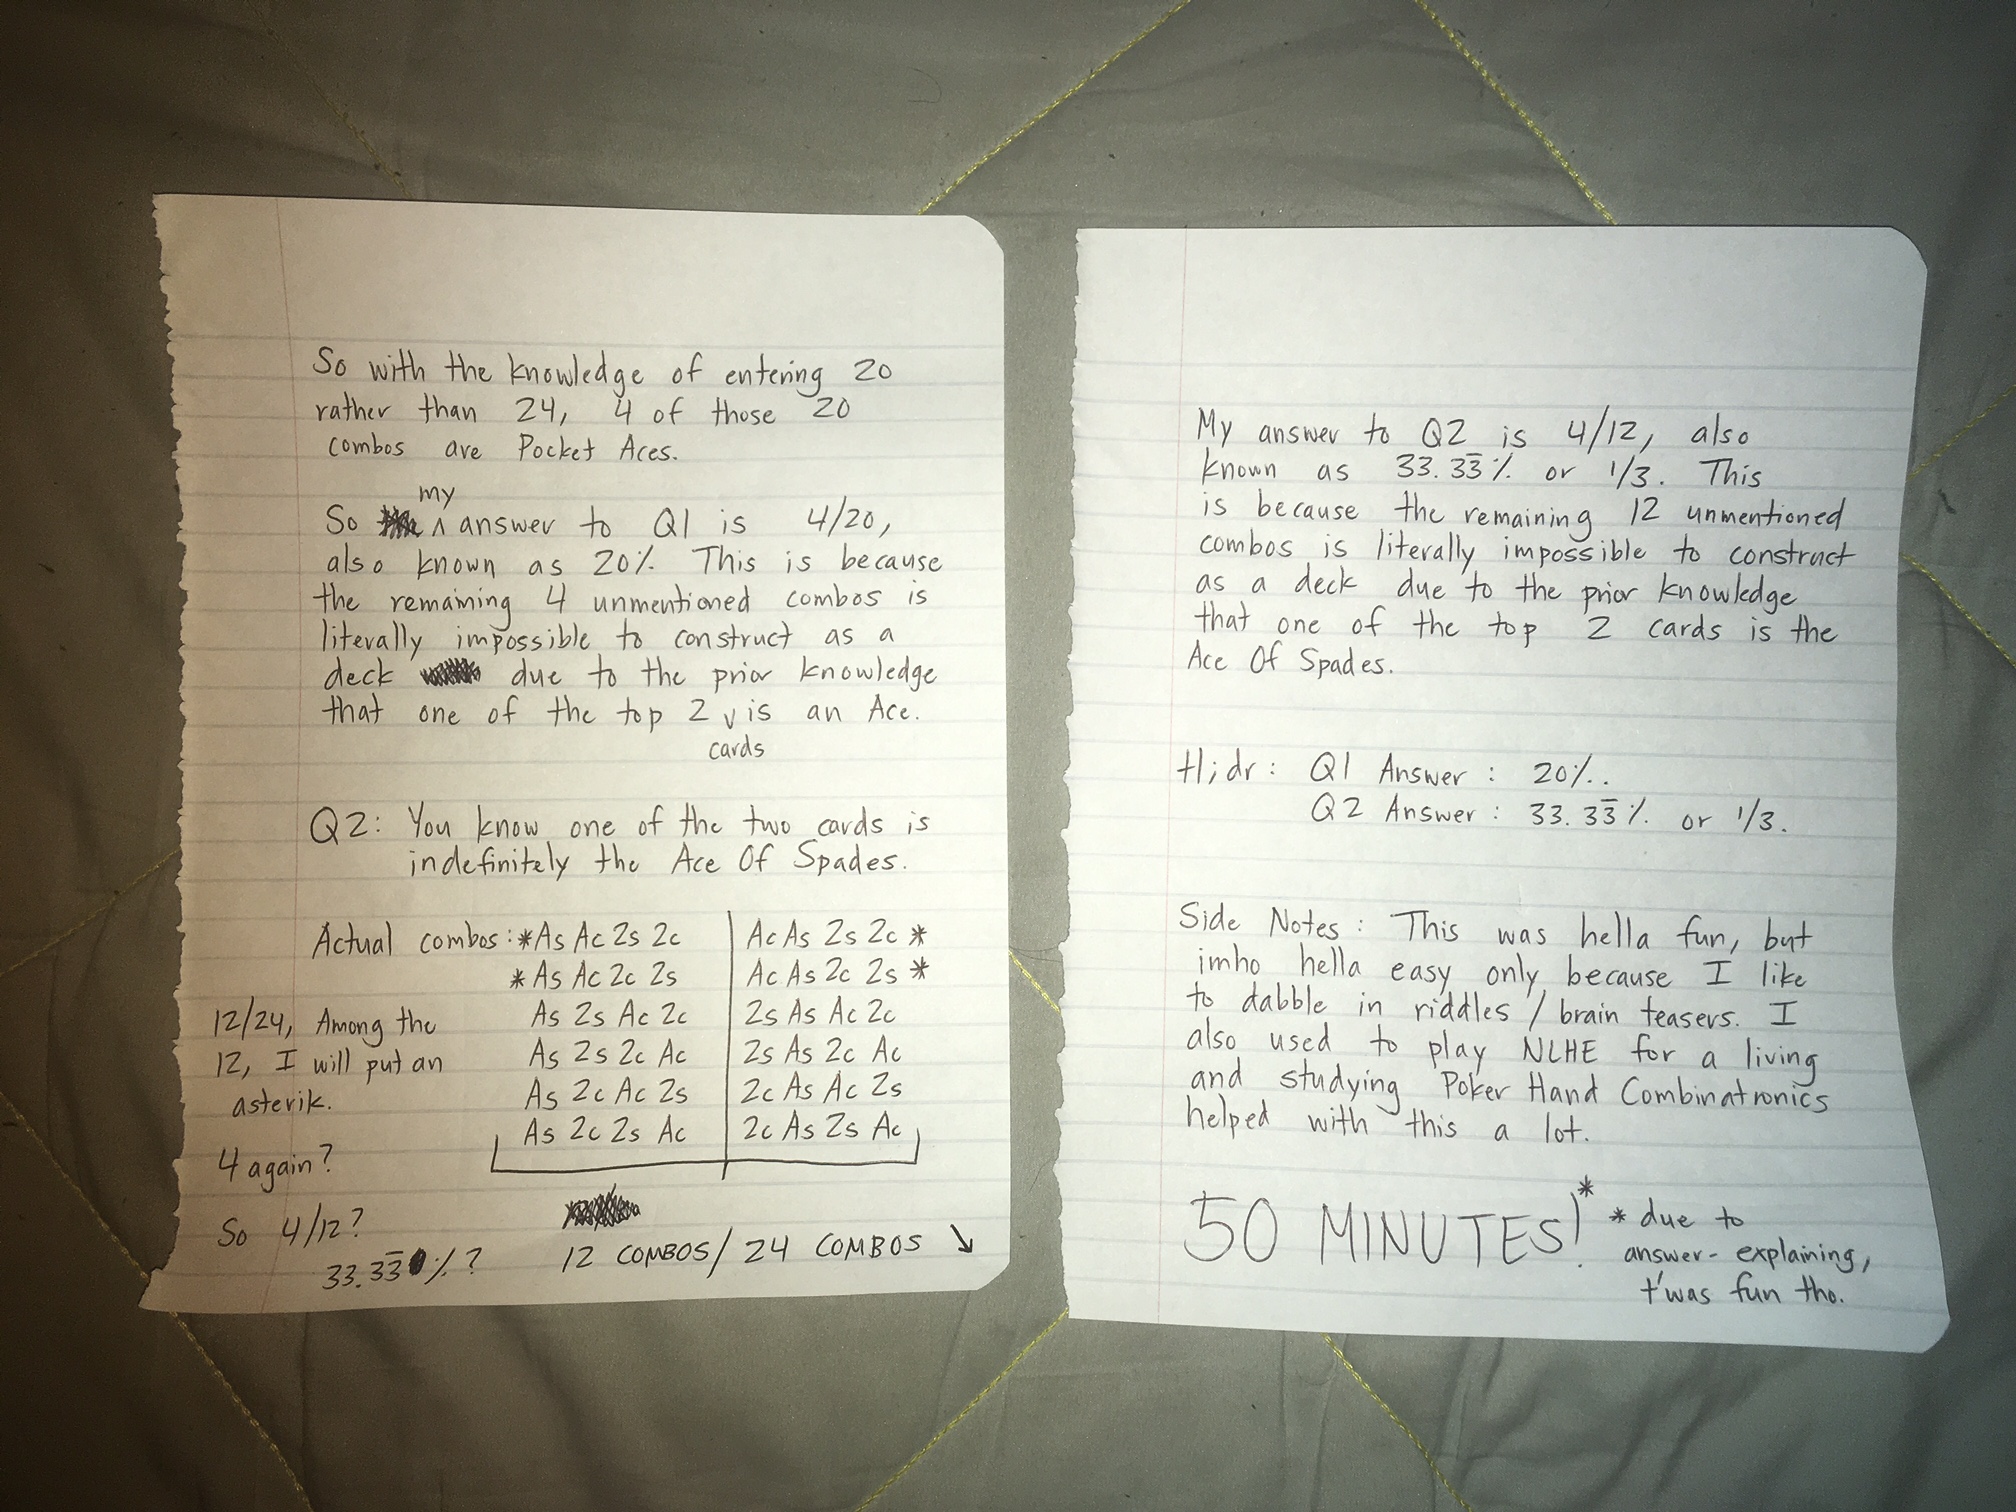 So with the knowledge of entering 20
rather than 24, 4 of those 20
combos are Pocket Aces.
So my answer to Q1 is 4/20,
also known as 20%. This is because
the remaining 4 unmentioned combos is
literally impossible to construct as a
deck due to the prior knowledge
that one of the top 2 cards is an Ace.
Q2: You know one of the two cards is
indefinitely the Ace Of Spades.
Actual combos: *As Ac 2s 2c | Ac As 2s 2c *
*As Ac 2c 2s | Ac As 2c 2s *
12/24, Among the As 2s Ac 2c | 2s As Ac 2c
12, I will put an As 2s 2c Ac | 2s As 2c Ac
asterik. As 2c Ac 2s | 2c As Ac 2s
As 2c 2s Ac | 2c As 2s Ac
4 again?
So 4/12?
33.33̅%?
12 COMBOS/24 COMBOS ↘
My answer to Q2 is 4/12, also
known as 33.33̅% or 1/3. This
is because the remaining 12 unmentioned
combos is literally impossible to construct
as a deck due to the prior knowledge
that one of the top 2 cards is the
Ace Of Spades.
tl;dr: Q1 Answer: 20%.
Q2 Answer: 33.33̅% or 1/3.
Side Notes: This was hella fun, but
imho hella easy only because I like
to dabble in riddles/brain teasers. I
also used to play NLHE for a living
and studying Poker Hand Combinatronics
helped with this a lot.
50 MINUTES!*
* due to
answer-explaining,
t'was fun tho.